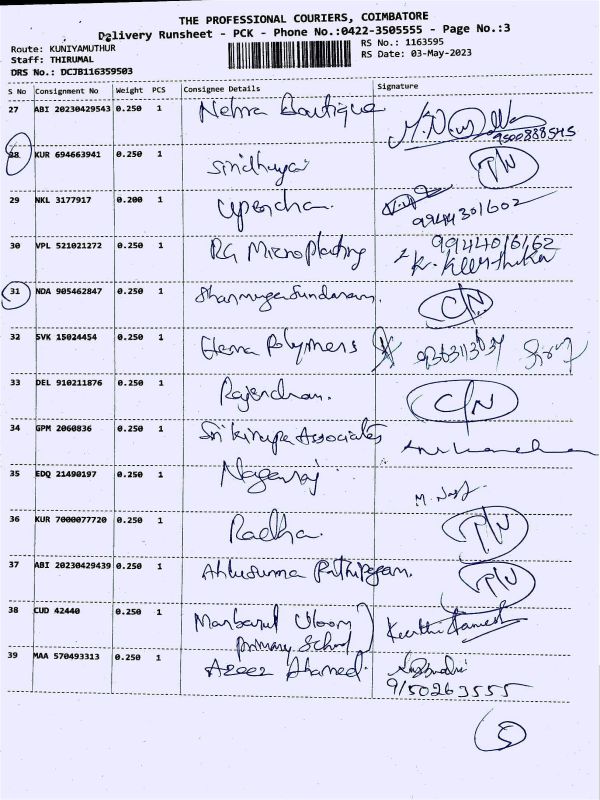 THE PROFESSIONAL COURIERS, COIMBATORE
Delivery Runsheet - PCK - Phone No.:0422-3505555 - Page No.:3
Route: KUNIYAMUTHUR
RS No.: 1163595
Staff: THIRUMAL
RS Date: 03-May-2023
DRS No.: DCJB116359503
S No Consignment No Weight PCS Consignee Details Signature
27 ABI 20230429543 0.250 1 Nehra Boutique
9500888545
28 KUR 694663941 0.250 1 P/N
29 NKL 3177917 0.200 1 9944301602
30 VPL 521021272 0.250 1 RG Microplating 9944016162
K. Keerthika
31 NDA 905462847 0.250 1 Shanmugasundaram. C/N
32 SVK 15024454 0.250 1 Hema Polymers
33 DEL 910211876 0.250 1 Rajendran. C/N
34 GPM 2060836 0.250 1 Sri kirupa Associates
35 EDQ 21490197 0.250 1 Nagaraj
36 KUR 7000077720 0.250 1 Radha. P/N
37 ABI 20230429439 0.250 1 P/N
38 CUD 42440 0.250 1 Manbaul Uloom
primary School
39 MAA 570493313 0.250 1 Azeez Ahamed.
9150263555
5